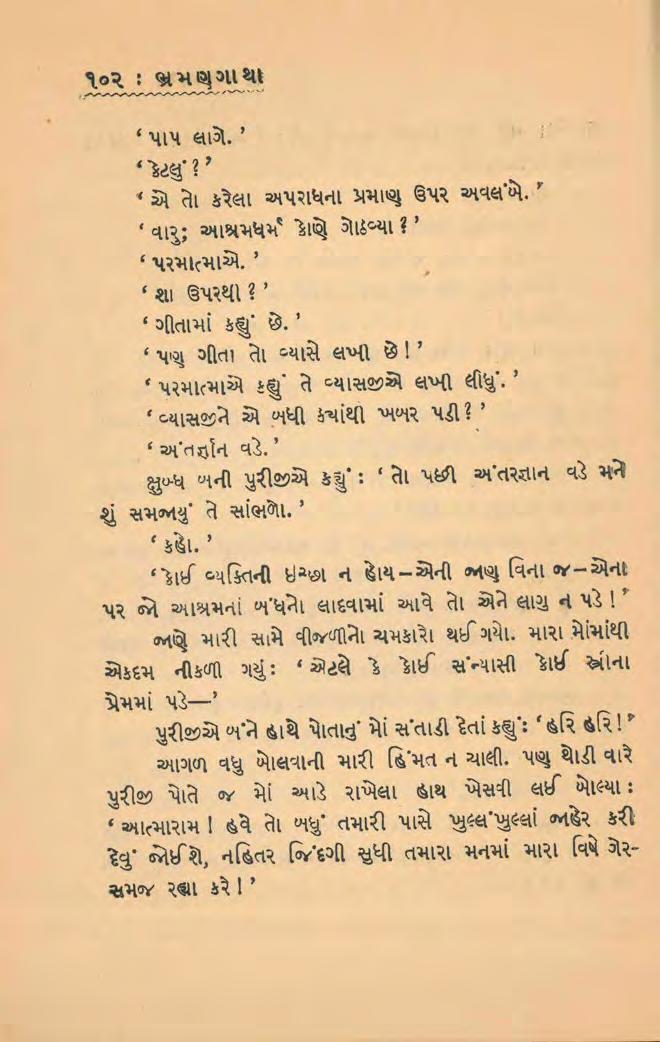 ૧૦૨ : ભ્રમણગાથા
‘ પાપ લાગે. ’
‘ કેટલું ? ’
‘ એ તો કરેલા અપરાધના પ્રમાણ ઉપર અવલંબે. ’
‘ વારુ; આશ્રમધર્મ કોણે ગોઠવ્યા ? ’
‘ પરમાત્માએ. ’
‘ શા ઉપરથી ? ’
‘ ગીતામાં કહ્યું છે. ’
‘ પણ ગીતા તો વ્યાસે લખી છે ! ’
‘ પરમાત્માએ કહ્યું તે વ્યાસજીએ લખી લીધું. ’
‘ વ્યાસજીને એ બધી ક્યાંથી ખબર પડી ? ’
‘ અંતર્જ્ઞાન વડે. ’
ક્ષુબ્ધ બની પુરીજીએ કહ્યું : ‘ તો પછી અંતરજ્ઞાન વડે મને
શું સમજાયું તે સાંભળો. ’
‘ કહો. ’
‘ કોઈ વ્યક્તિની ઇચ્છા ન હોય – એની જાણ વિના જ – એના
પર જો આશ્રમનાં બંધનો લાદવામાં આવે તો એને લાગુ ન પડે ! ’
જાણે મારી સામે વીજળીનો ચમકારો થઈ ગયો. મારા મોંમાંથી
એકદમ નીકળી ગયું : ‘ એટલે કે કોઈ સંન્યાસી કોઈ સ્ત્રીના
પ્રેમમાં પડે— ’
પુરીજીએ બંને હાથે પોતાનું મોં સંતાડી દેતાં કહ્યું : ‘ હરિ હરિ ! ’
આગળ વધુ બોલવાની મારી હિંમત ન ચાલી. પણ થોડી વારે
પુરીજી પોતે જ મોં આડે રાખેલા હાથ ખેસવી લઈ બોલ્યા :
‘ આત્મારામ ! હવે તો બધું તમારી પાસે ખુલ્લંખુલ્લાં જાહેર કરી
દેવું જોઈશે, નહિતર જિંદગી સુધી તમારા મનમાં મારા વિષે ગેર-
સમજ રહ્યા કરે ! ’